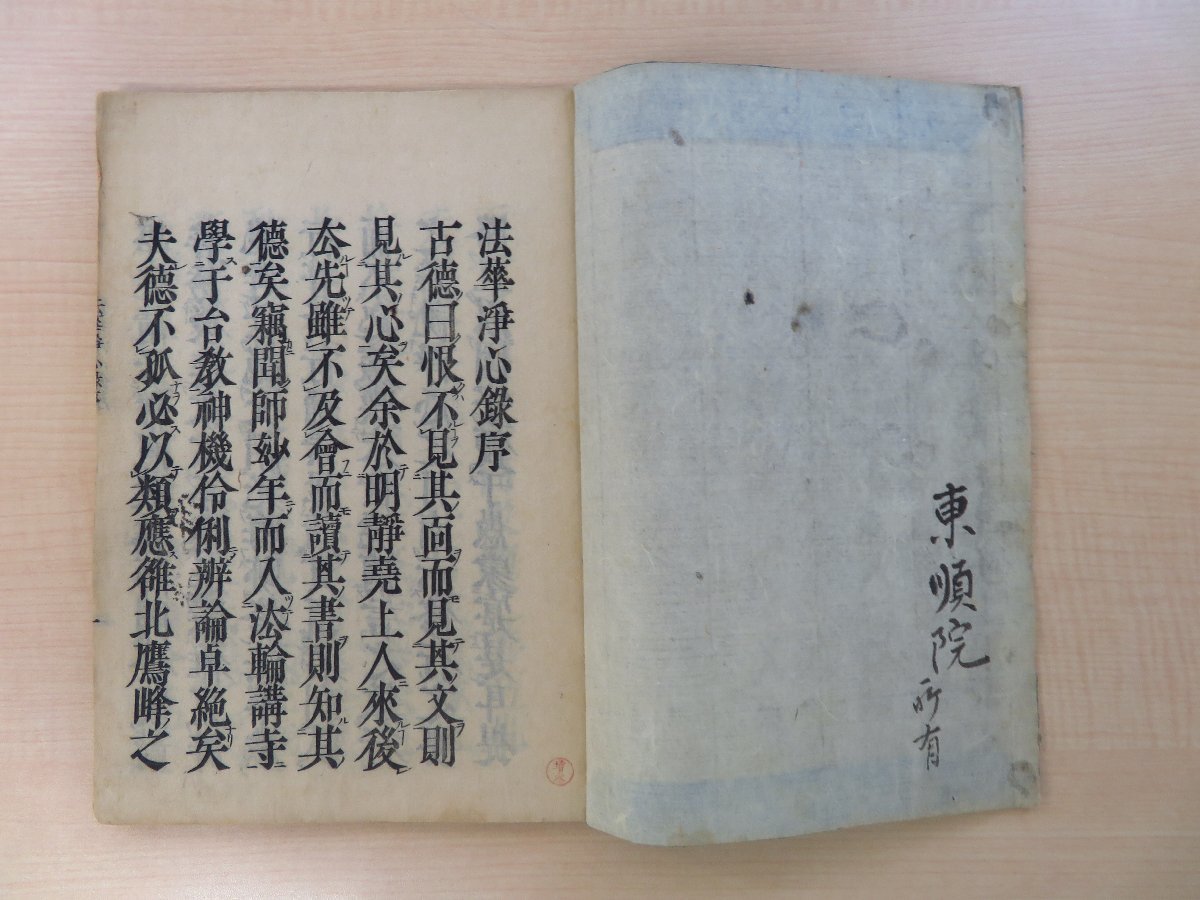 東順院
所有
法華淨心錄序
古德曰恨不見其面而見其文則
見其心矣余於明靜堯上人來後
厺先雖不及會而讀其書則知其
德矣竊聞師妙年而入法輪講寺
學于台教神機伶俐辨論卓絶矣
夫德不孤必以類應雒北鷹峰之